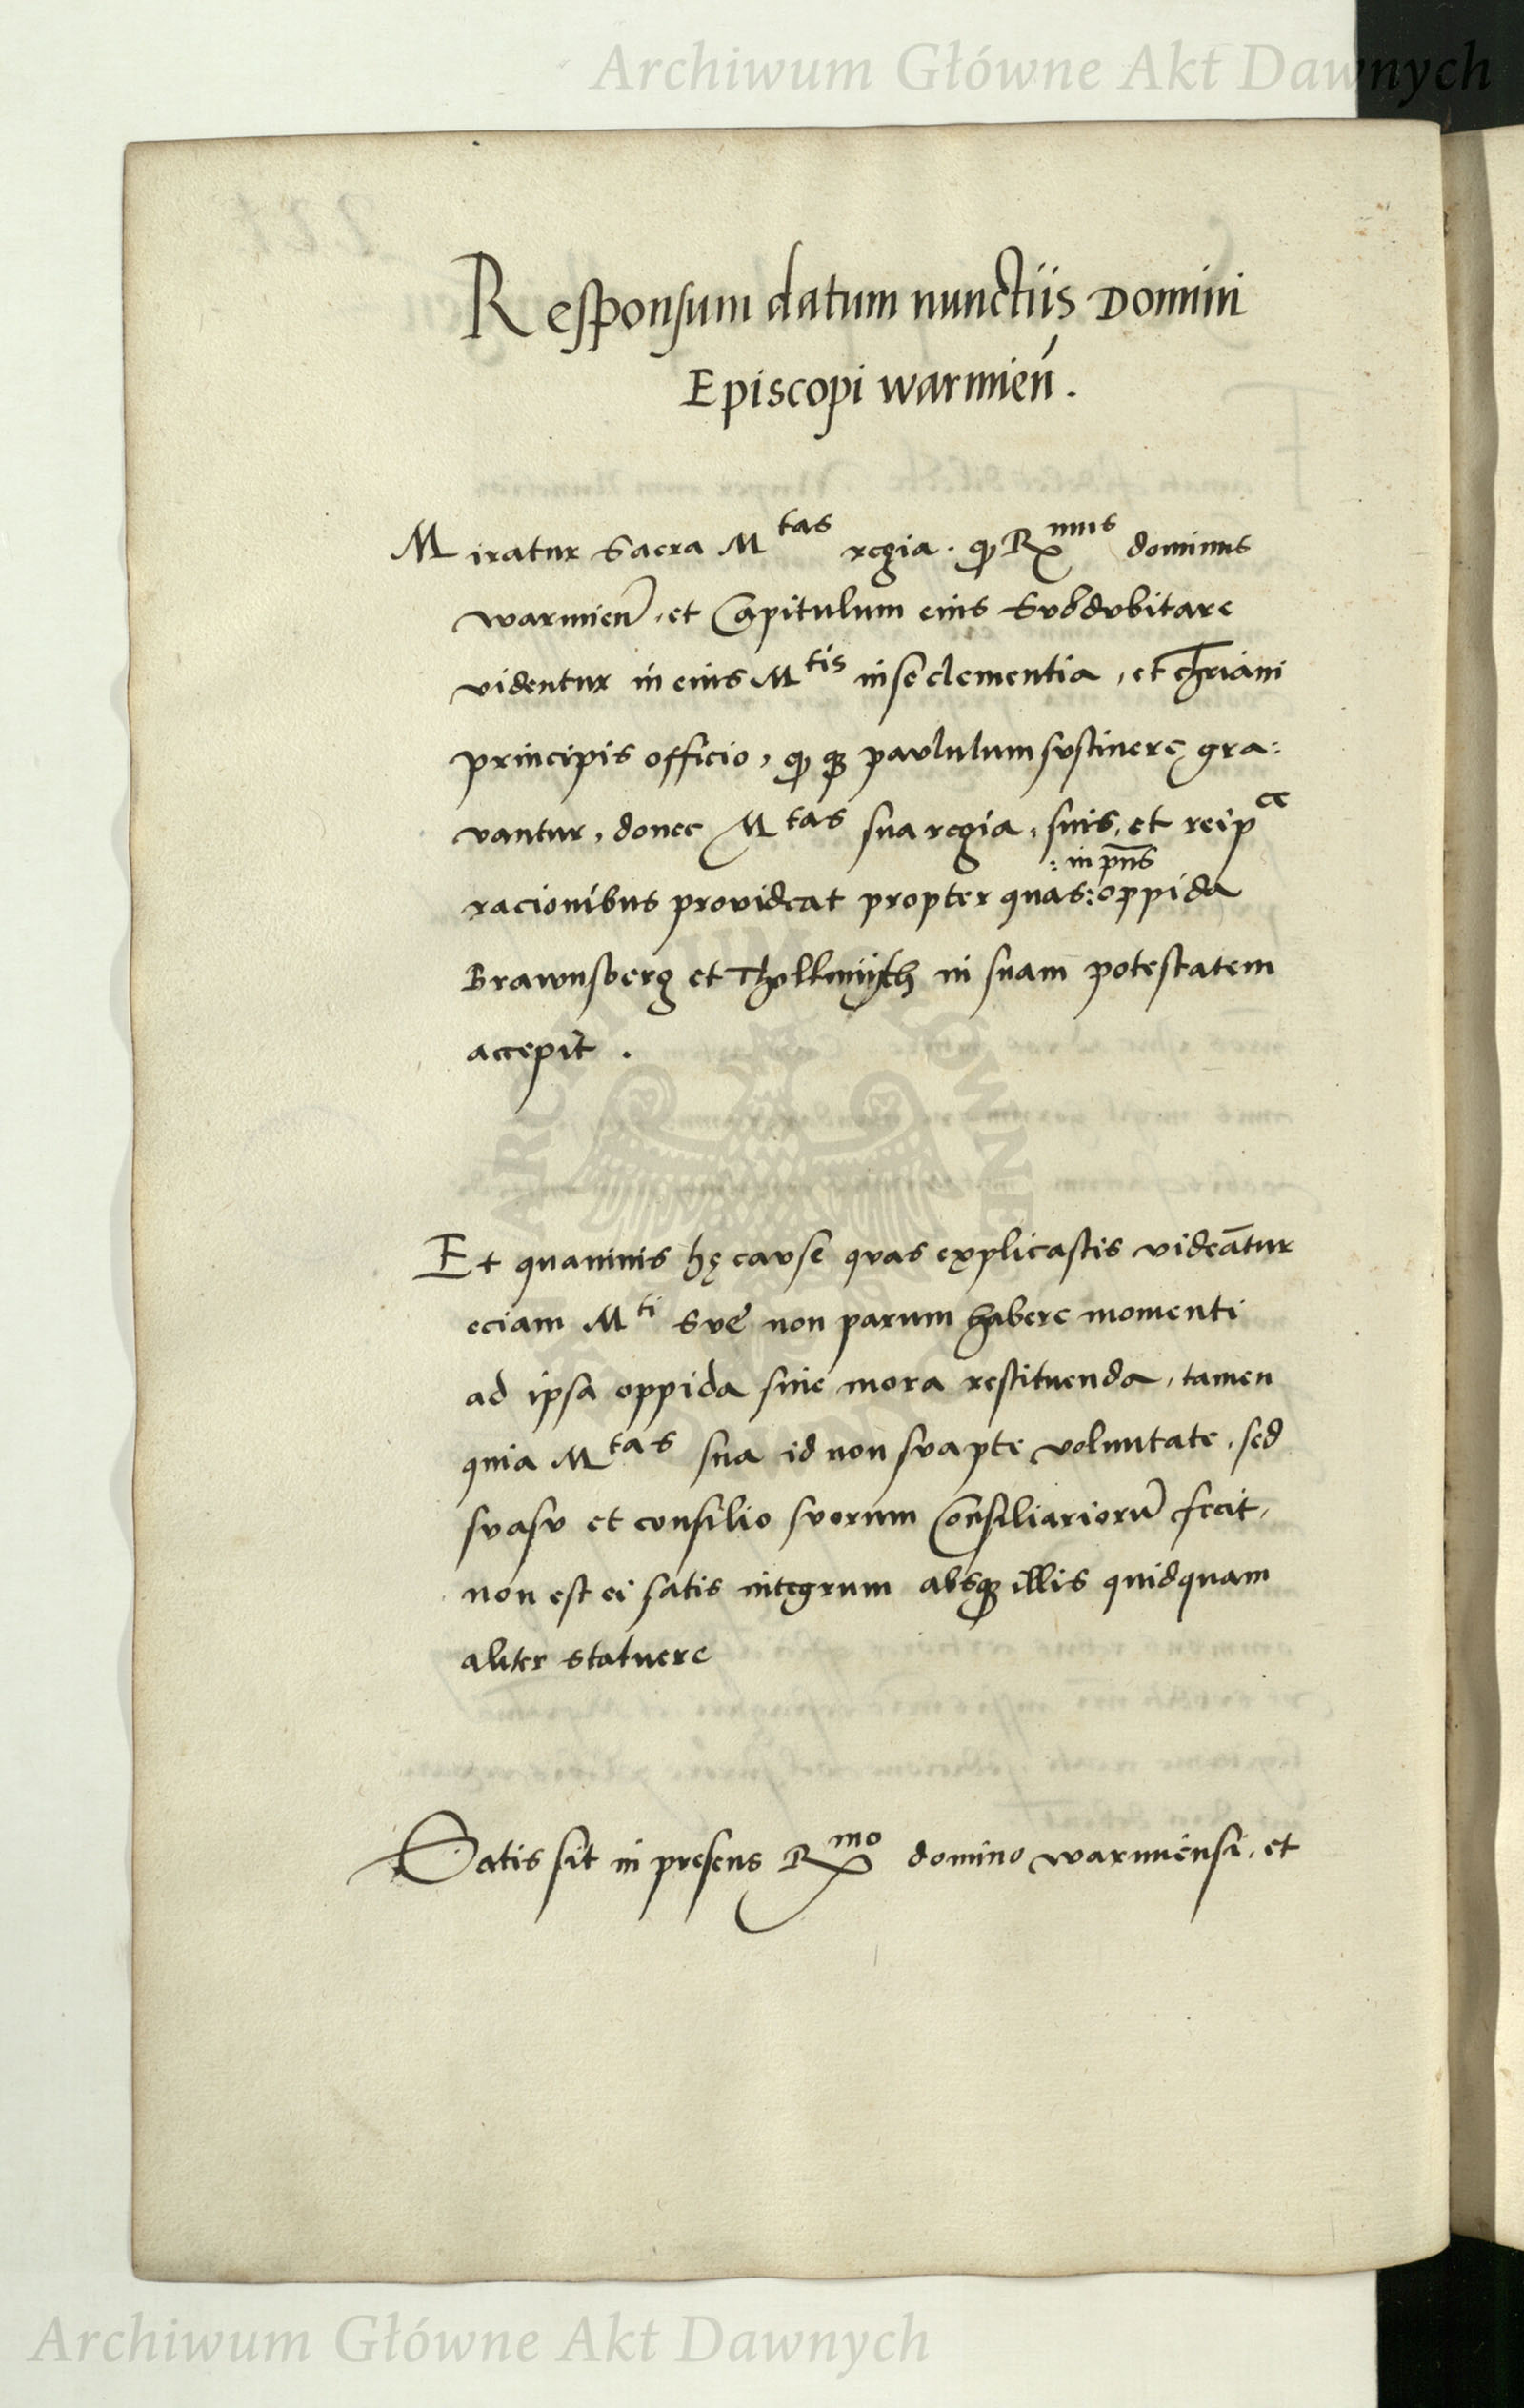 Archiwum Główne Akt Dawnych
Responsum datum nunctiis Domini
Episcopi warmień.
Miratur Sacra Mtas regia. qꝙ Rxmus dominus
warmien̄, et Capitulum eius Subdubitare
videntur in eius Mtis in se clementia, et chr̄iani
principis officio, ꝙ ꝙ paululum sustinere gra:
vantur, donec Mtas sua regia, suis, et reipce
:in pn̄s
racionibus provideat propter quas: oppida
Brawnsberg et Tholkmith in suam potestatem
accepit.
Et quamuis hę causę quas explicastis videātur
eciam Mti Suę non parum habere momenti
ad ipsa oppida sine mora restituenda, tamen
quia Mtas sua id non suapte voluntate, sed
suasu et consilio suorum Consiliariorū fecit,
non est ei satis integrum absqꝫ illis quidquam
aliter statuere
Satis sit in presens Rxmo domino warmiensi, et
Archiwum Główne Akt Dawnych